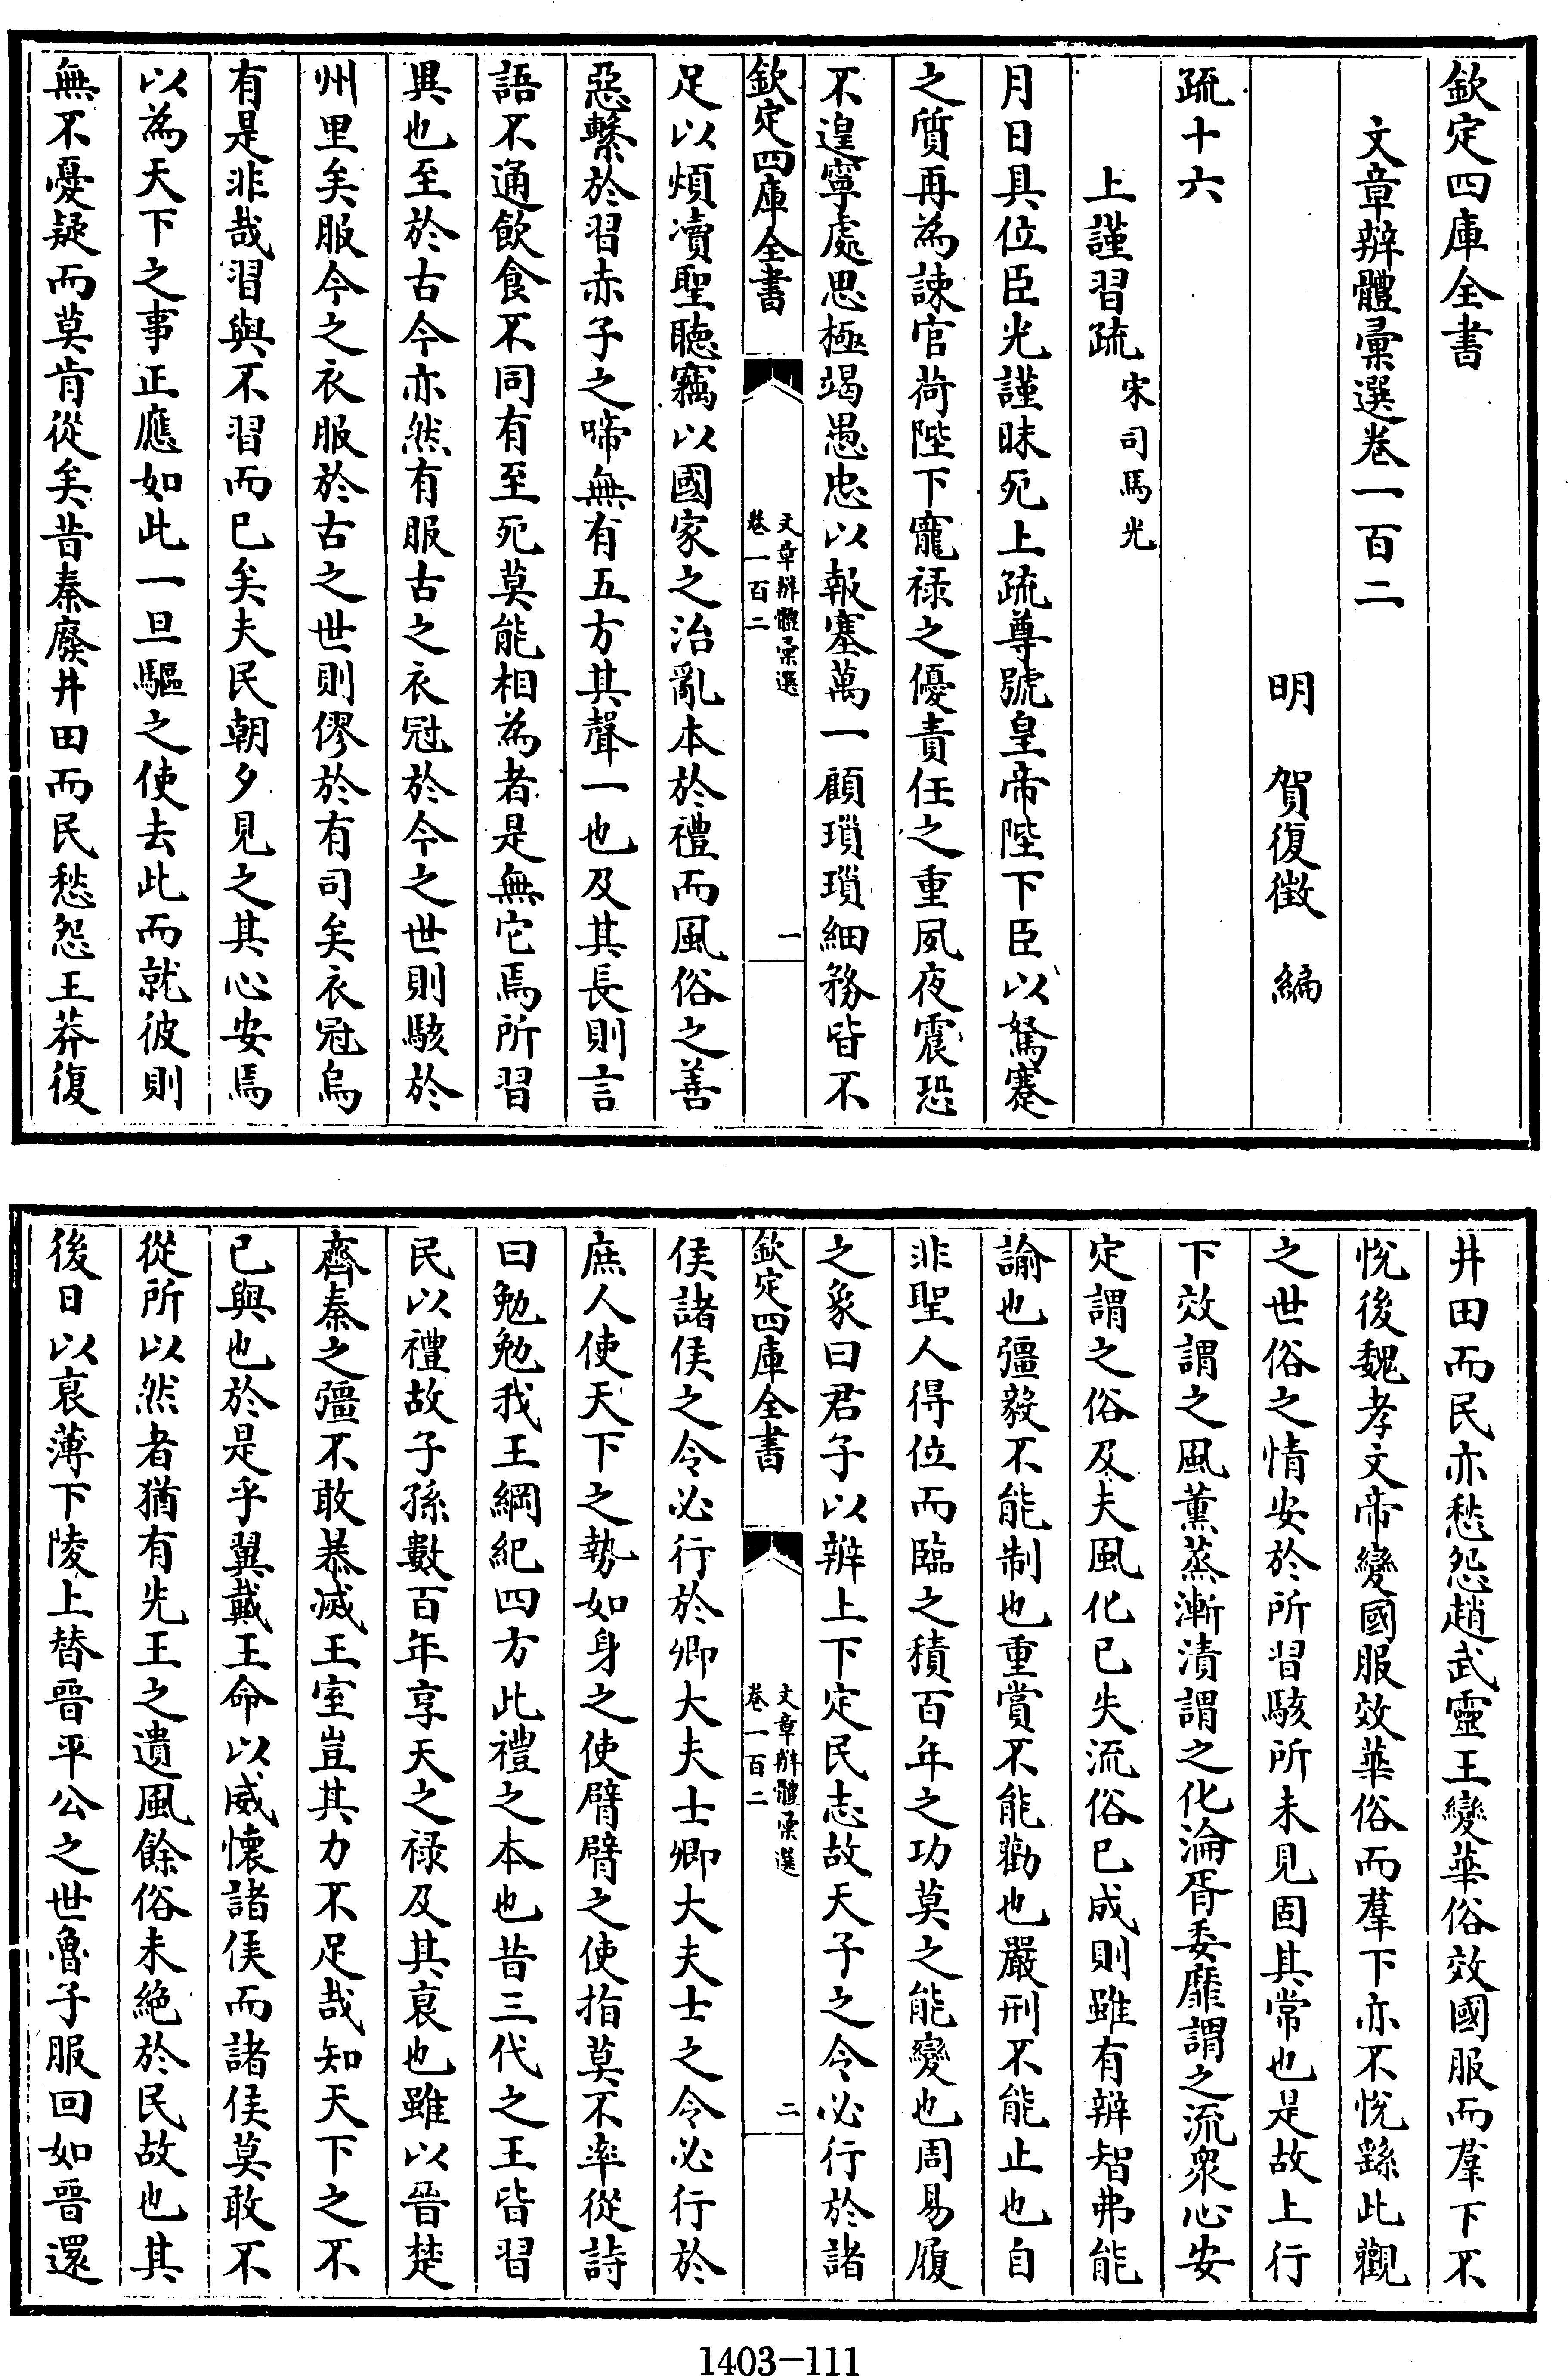 欽定四庫全書
文章辨體彙選卷一百二
明　賀復徵　編
疏十六
上謹習疏宋司馬光
月日具位臣光謹昧死上疏尊號皇帝陛下臣以駑蹇
之質再為諫官荷陛下寵禄之優責任之重夙夜震恐
不遑寧處思極竭愚忠以報塞萬一顧瑣瑣細務皆不
欽定四庫全書
文章辨體彙選
卷一百二
一
足以煩瀆聖聽竊以國家之治亂本於禮而風俗之善
惡繫於習赤子之啼無有五方其聲一也及其長則言
語不通飲食不同有至死莫能相為者是無它焉所習
異也至於古今亦然有服古之衣冠於今之世則駭於
州里矣服今之衣服於古之世則僇於有司矣衣冠烏
有是非哉習與不習而已矣夫民朝夕見之其心安焉
以為天下之事正應如此一旦驅之使去此而就彼則
無不憂疑而莫肯從矣昔秦廢井田而民愁怨王莽復
井田而民亦愁怨趙武靈王變華俗效國服而羣下不
悅後魏孝文帝變國服效華俗而羣下亦不悅繇此觀
之世俗之情安於所習駭所未見固其常也是故上行
下效謂之風薰蒸漸漬謂之化淪胥委靡謂之流衆心安
定謂之俗及夫風化已失流俗已成則雖有辨智弗能
諭也彊毅不能制也重賞不能勸也嚴刑不能止也自
非聖人得位而臨之積百年之功莫之能變也周易履
之象曰君子以辨上下定民志故天子之令必行於諸
欽定四庫全書
文章辨體彙選
卷一百二
二
侯諸侯之令必行於卿大夫士卿大夫士之令必行於
庶人使天下之勢如身之使臂臂之使指莫不率從詩
曰勉勉我王綱紀四方此禮之本也昔三代之王皆習
民以禮故子孫數百年享天之禄及其衰也雖以晉楚
齊秦之彊不敢暴滅王室豈其力不足哉知天下之不
已與也於是乎翼戴王命以威懷諸侯而諸侯莫敢不
從所以然者猶有先王之遺風餘俗未絶於民故也其
後日以衰薄下陵上替晉平公之世魯子服回如晉還
1403-111